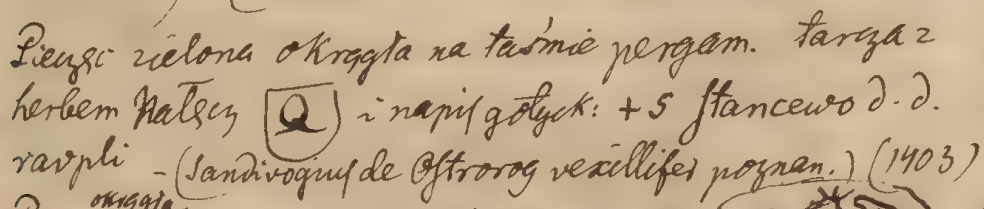 Pieczęć zielona okrągła na taśmie pergam. tarcza z
herbem Nałęcz i napis gotyck: + S Stancewo d. d.
ravpli - (Sandivogius de Ostrorog vexillifer poznan.) (1403)
okrągła